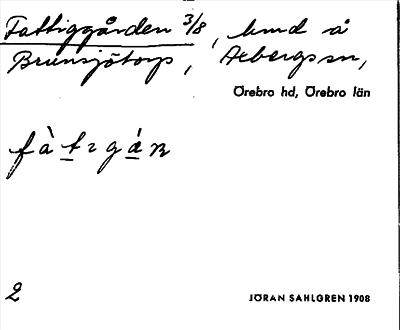 Fattiggården 3/8, hmd å
Brunsjötorp, Axbergs sn,
Örebro hd, Örebro län
fàtigán
2
JÖRAN SAHLGREN 1908